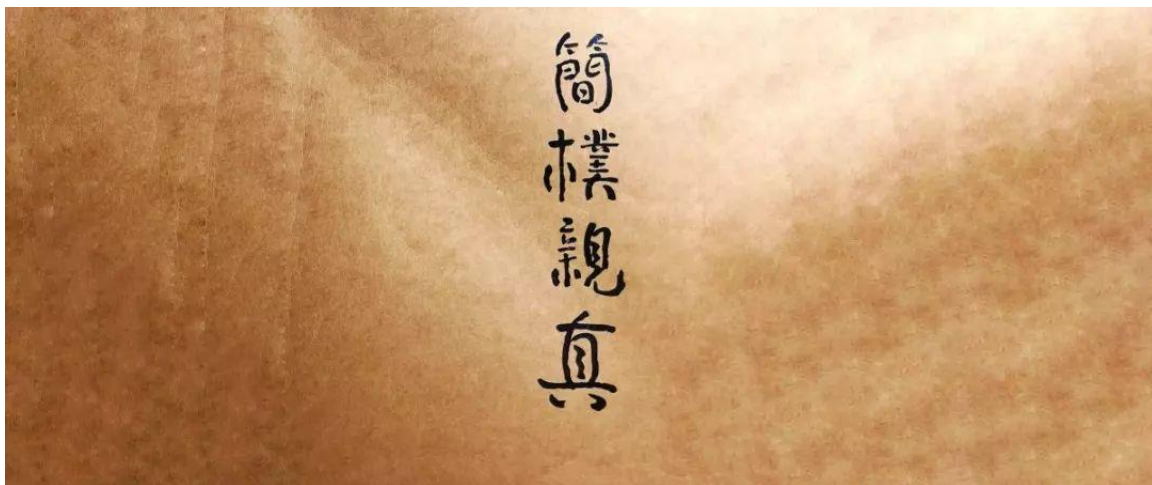 簡樸親真